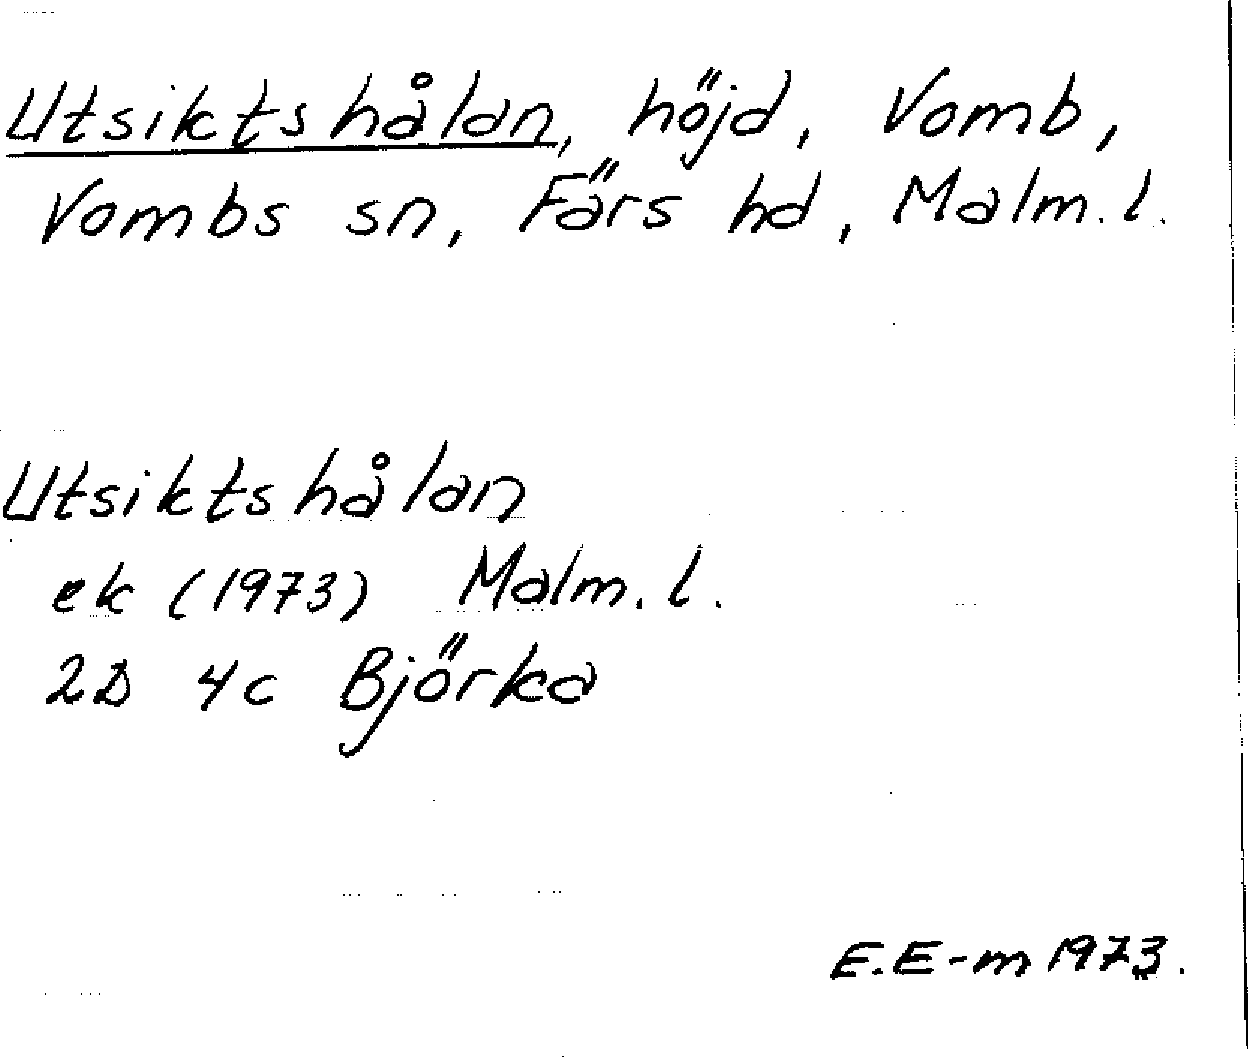 Utsiktshålan, höjd, Vomb,
Vombs sn, Färs hd, Malm. l.
Utsiktshålan
ek (1973) Malm. l.
2D 4c Björka
E.E-m 1973.